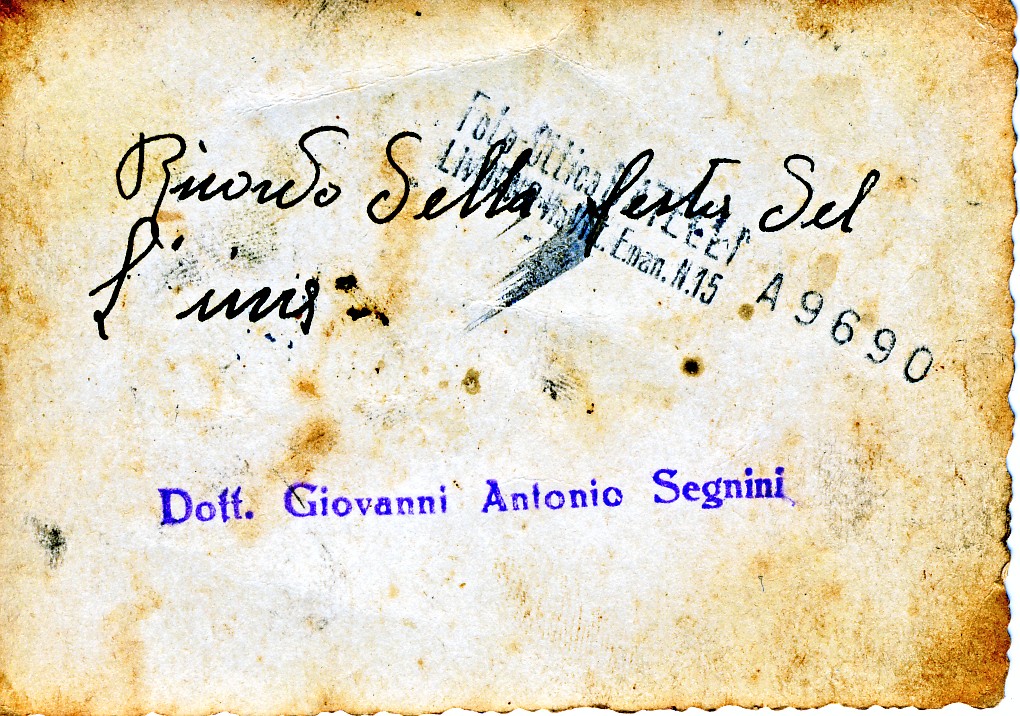 Ricordo della festa del
Foto Ottica
Livorno Via Vitt. Eman. N.15
A9690
Dott. Giovanni Antonio Segnini